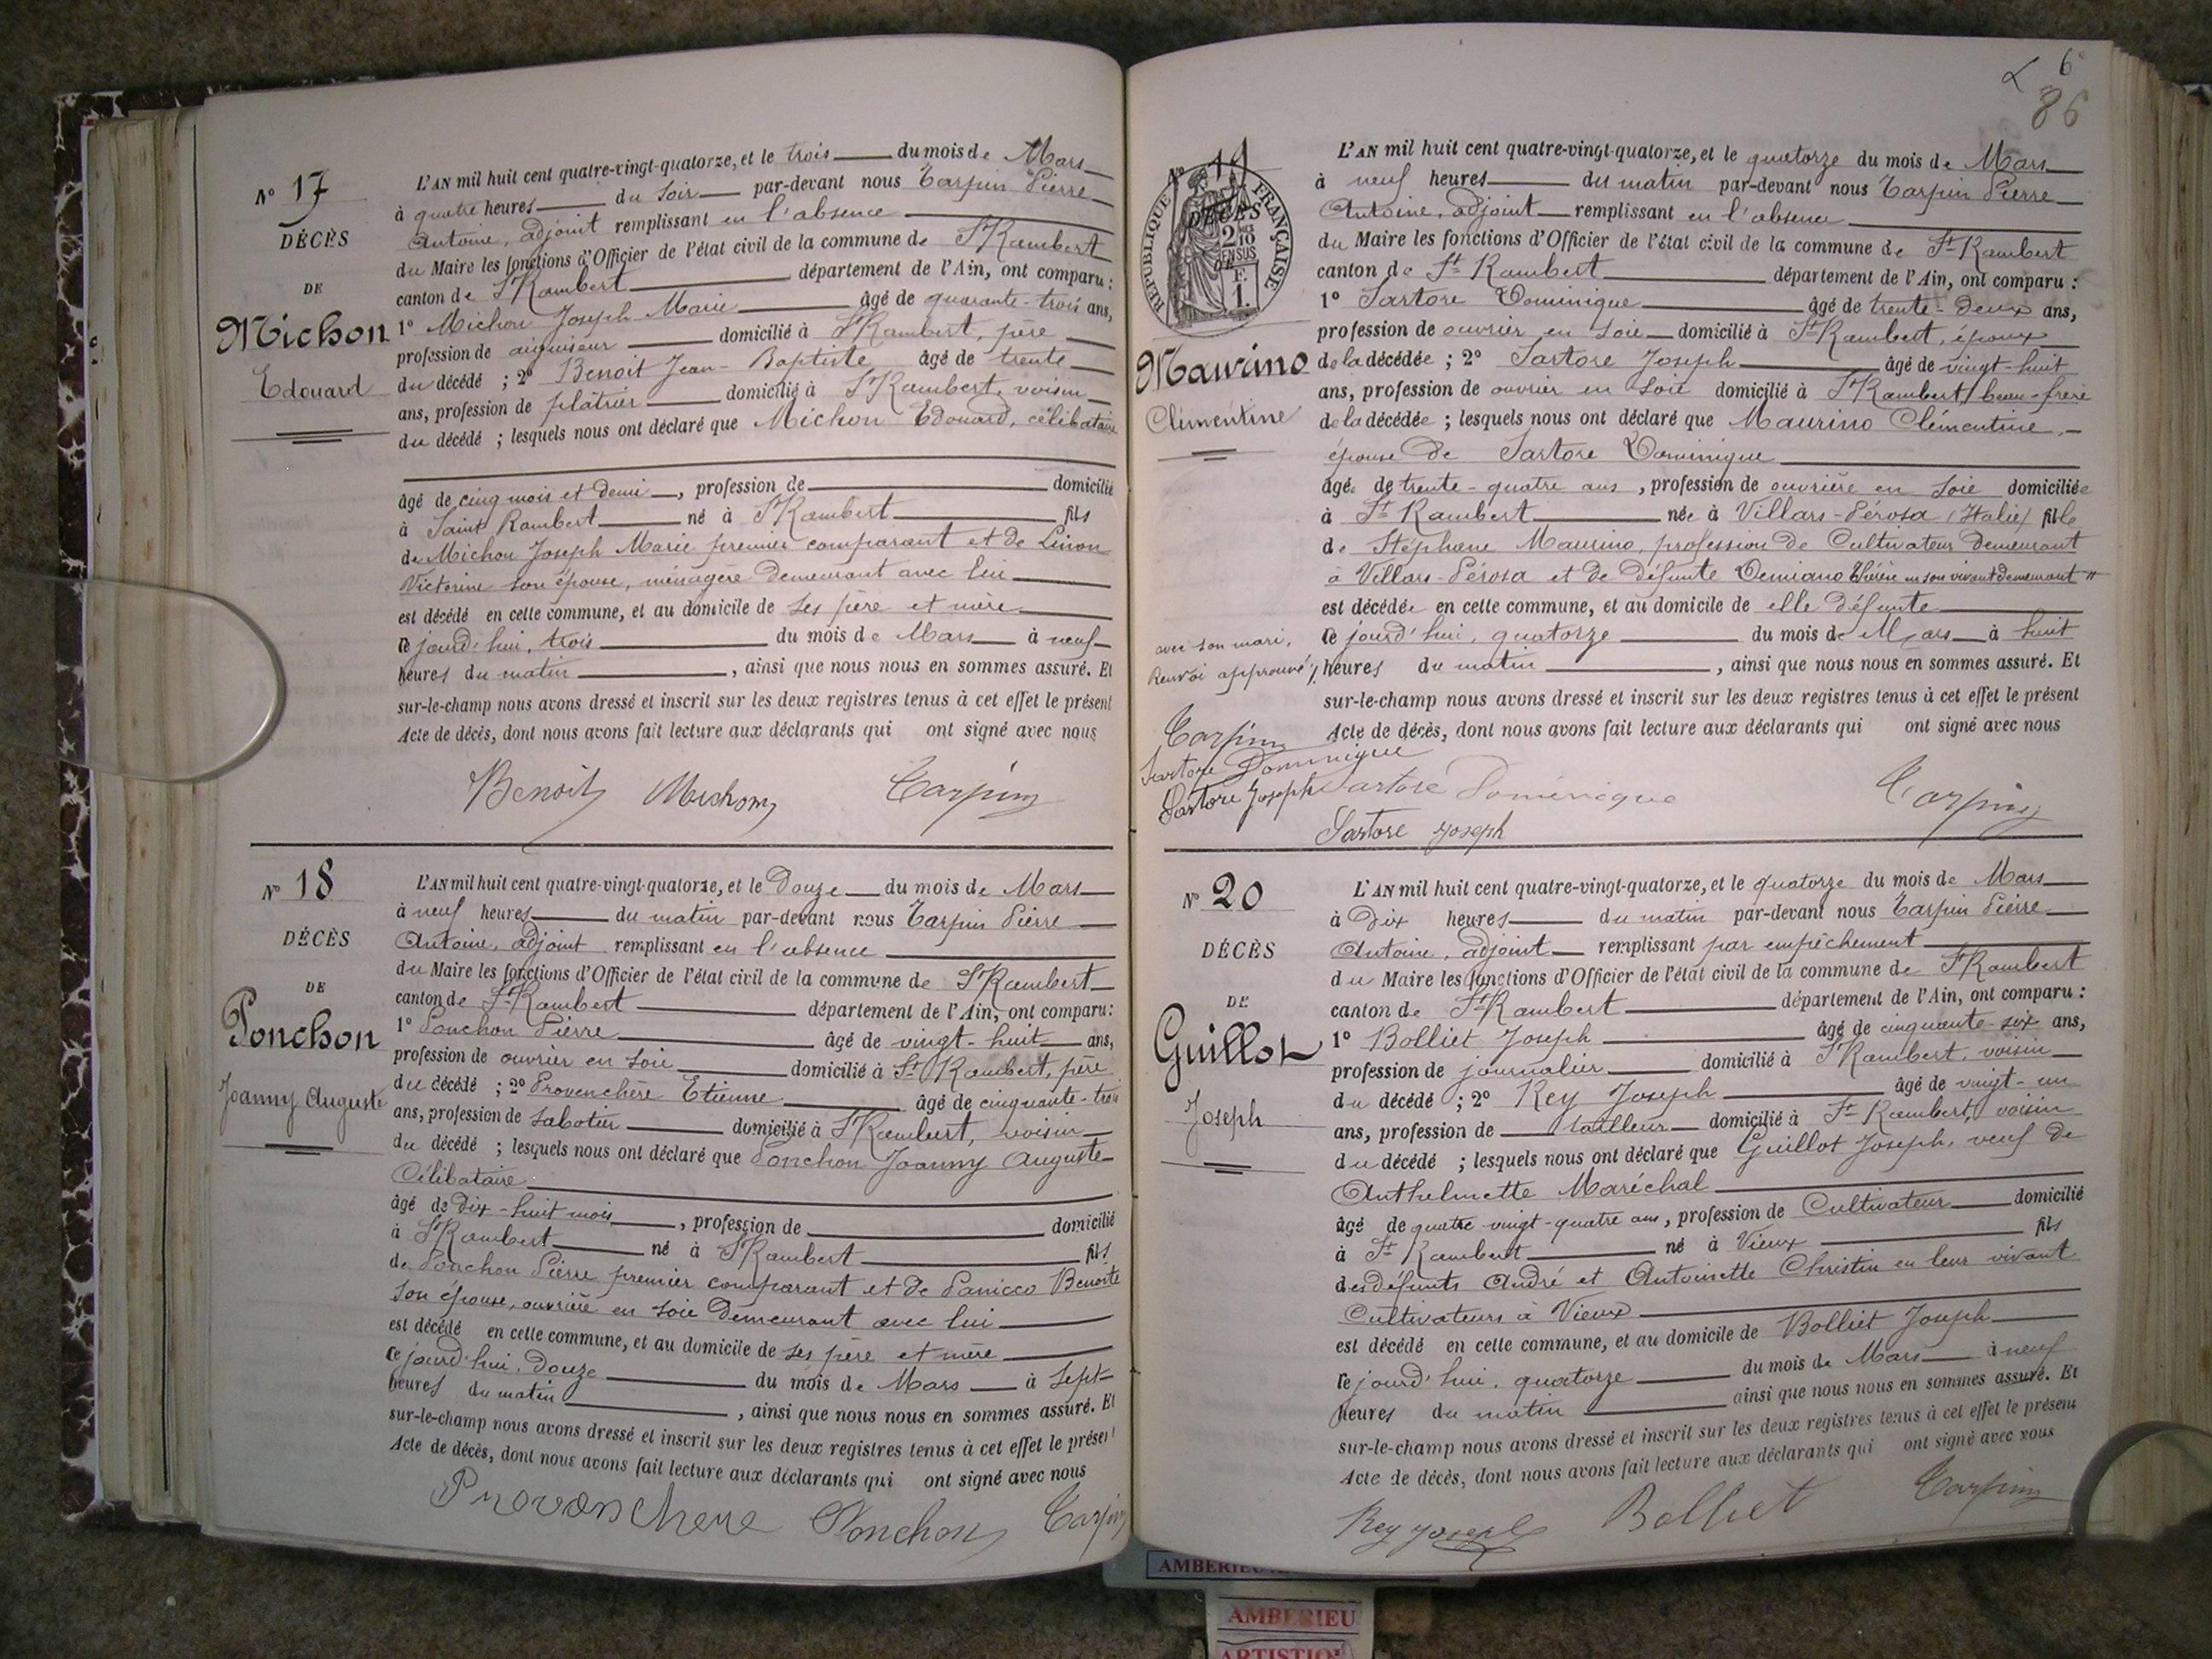 N° 17
DÉCÈS
DE
Michon
Edouard
L'AN mil huit cent quatre-vingt-quatorze, et le trois du mois de Mars
à quatre heures du soir par-devant nous Tarpin Pierre
Antoine, adjoint remplissant en l'absence
du Maire les fonctions d'Officier de l'état civil de la commune de St Rambert
canton de St Rambert département de l'Ain, ont comparu :
1° Michon Joseph Marie âgé de quarante-trois ans,
profession de aiguiseur domicilié à St Rambert, père
du décédé ; 2° Benoit Jean-Baptiste âgé de trente
ans, profession de plâtrier domicilié à St Rambert, voisin
du décédé ; lesquels nous ont déclaré que Michon Edouard, célibataire
âgé de cinq mois et demi, profession de domicilié
à Saint Rambert né à St Rambert fils
de Michon Joseph Marie premier comparant et de
Victorine son épouse, ménagère demeurant avec lui
est décédé en cette commune, et au domicile de ses père et mère
ce jourd'hui, trois du mois de Mars à neuf
heures du matin, ainsi que nous nous en sommes assuré. Et
sur-le-champ nous avons dressé et inscrit sur les deux registres tenus à cet effet le présent
Acte de décès, dont nous avons fait lecture aux déclarants qui ont signé avec nous
Benoit Michon Tarpin
N° 18
DÉCÈS
DE
Ponchon
Joanny Auguste
L'AN mil huit cent quatre-vingt-quatorze, et le Douze du mois de Mars
à neuf heures du matin par-devant nous Tarpin Pierre
Antoine, adjoint remplissant en l'absence
du Maire les fonctions d'Officier de l'état civil de la commune de St Rambert
canton de St Rambert département de l'Ain, ont comparu :
1° Ponchon Pierre âgé de vingt-huit ans,
profession de ouvrier en soie domicilié à St Rambert, père
du décédé ; 2° Provenchère Etienne âgé de cinquante-trois
ans, profession de sabotier domicilié à St Rambert, voisin
du décédé ; lesquels nous ont déclaré que Ponchon Joanny Auguste
Célibataire
âgé de dix-huit mois, profession de domicilié
à St Rambert né à St Rambert fils
de Ponchon Pierre premier comparant et de Panicco Benoite
son épouse, ouvrière en soie demeurant avec lui
est décédé en cette commune, et au domicile de ses père et mère
ce jourd'hui, douze du mois de Mars à sept
heures du matin, ainsi que nous nous en sommes assuré. Et
sur-le-champ nous avons dressé et inscrit sur les deux registres tenus à cet effet le présent
Acte de décès, dont nous avons fait lecture aux déclarants qui ont signé avec nous
Provenchere Ponchon Tarpin
6
86
N° 19
RÉPUBLIQUE FRANÇAISE
DÉCÈS
2/10 EN SUS
DE
F.
1.
Maurino
Clémentine
L'AN mil huit cent quatre-vingt-quatorze, et le quatorze du mois de Mars
à neuf heures du matin par-devant nous Tarpin Pierre
Antoine, adjoint remplissant en l'absence
du Maire les fonctions d'Officier de l'état civil de la commune de St Rambert
canton de St Rambert département de l'Ain, ont comparu :
1° Sartore Dominique âgé de trente-deux ans,
profession de ouvrier en soie domicilié à St Rambert, époux
de la décédée ; 2° Sartore Joseph âgé de vingt-huit
ans, profession de ouvrier en soie domicilié à St Rambert, beau-frère
de la décédée ; lesquels nous ont déclaré que Maurino Clémentine,
épouse de Sartore Dominique
âgée de trente-quatre ans, profession de ouvrière en soie domiciliée
à St Rambert née à Villars-Pérosa (Italie) fille
de Stéphane Maurino, profession de Cultivateur demeurant
à Villars-Pérosa et de défunte Demiano Thérèse en son vivant demeurant
est décédée en cette commune, et au domicile de elle défunte
ce jourd'hui, quatorze du mois de Mars à huit
heures du matin, ainsi que nous nous en sommes assuré. Et
sur-le-champ nous avons dressé et inscrit sur les deux registres tenus à cet effet le présent
Acte de décès, dont nous avons fait lecture aux déclarants qui ont signé avec nous
avec son mari,
Renvoi approuvé
Tarpin
Sartore Dominique
Sartore Joseph
Sartore Dominique Tarpin
Sartore Joseph
N° 20
DÉCÈS
DE
Guillot
Joseph
L'AN mil huit cent quatre-vingt-quatorze, et le quatorze du mois de Mars
à Dix heures du matin par-devant nous Tarpin Pierre
Antoine, adjoint remplissant par empêchement
du Maire les fonctions d'Officier de l'état civil de la commune de St Rambert
canton de St Rambert département de l'Ain, ont comparu :
1° Bolliet Joseph âgé de cinquante-six ans,
profession de journalier domicilié à St Rambert, voisin
du décédé ; 2° Rey Joseph âgé de vingt-un
ans, profession de tailleur domicilié à St Rambert, voisin
du décédé ; lesquels nous ont déclaré que Guillot Joseph, veuf de
Anthelmette Maréchal
âgé de quatre vingt-quatre ans, profession de Cultivateur domicilié
à St Rambert né à Vieux fils
des défunts André et Antoinette Christin en leur vivant
Cultivateurs à Vieux
est décédé en cette commune, et au domicile de Bolliet Joseph
ce jourd'hui, quatorze du mois de Mars à neuf
heures du matin ainsi que nous nous en sommes assuré. Et
sur-le-champ nous avons dressé et inscrit sur les deux registres tenus à cet effet le présent
Acte de décès, dont nous avons fait lecture aux déclarants qui ont signé avec nous
Rey Joseph Bolliet Tarpin
AMBERIEU
AMBERIEU
ARTISTIQ